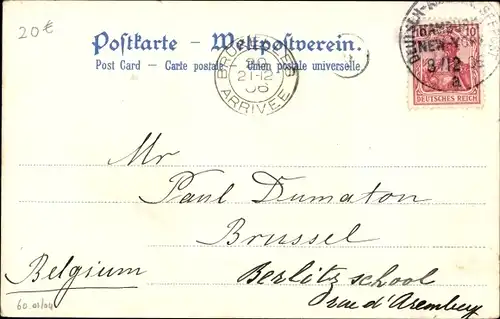 20€
Postkarte - Weltpostverein.
Post Card - Carte postale - Union postale universelle.
21-12
06
ARRIVEE
HAMBURG
NEW
8/12 06
a
10
DEUTSCHES REICH
Mr
Paul Dumaton
Brussel
Belgium
Berlitz school
rue d'Aremberg